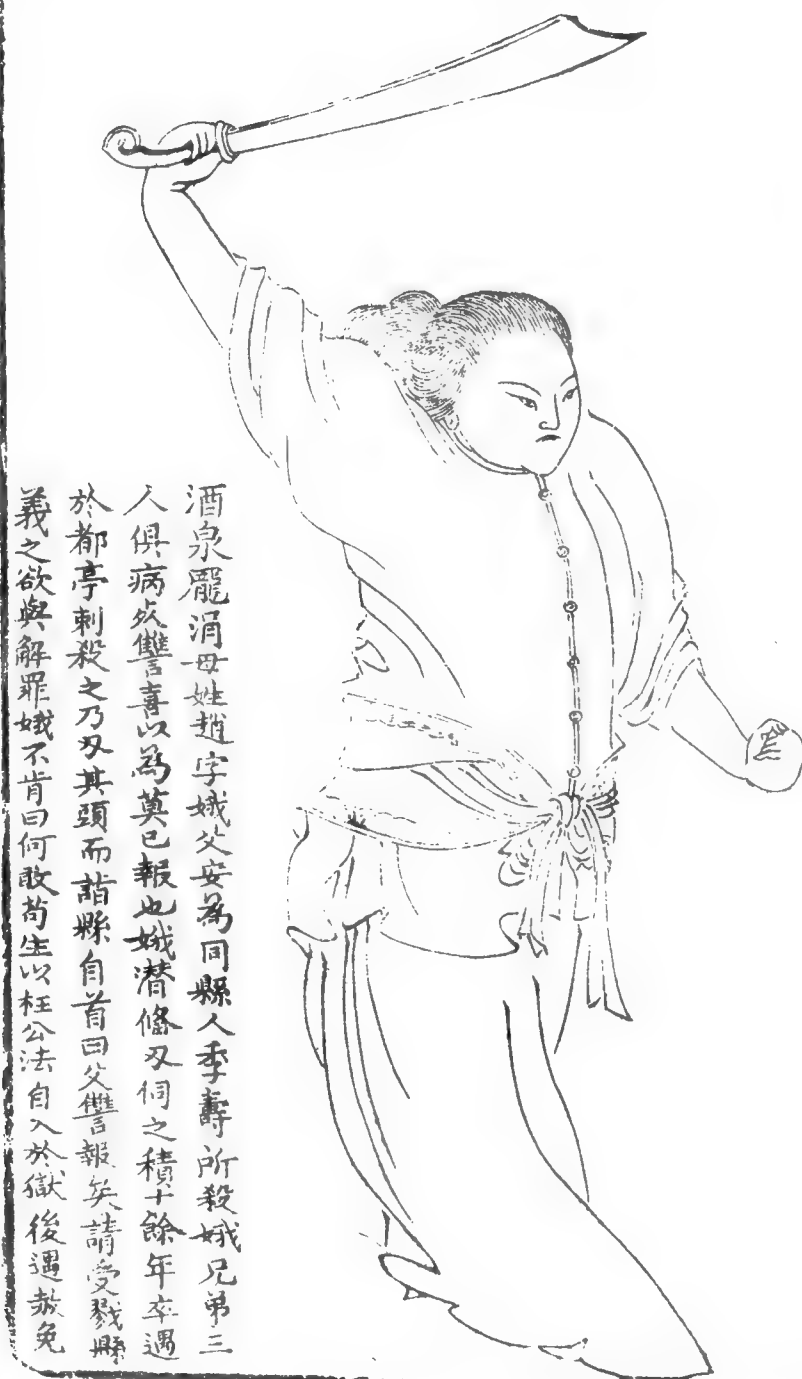 酒泉龐涓母姓趙字娥父安為同縣人季壽所殺娥兄弟三
人俱病死讐喜以為莫已報也娥潛偹刃伺之積十餘年卒遇
於都亭刺殺之乃刃其頭而詣縣自首曰父讐報矣請受戮縣
義之欲與解罪娥不肯曰何敢苟生以枉公法自入於獄後遇赦免